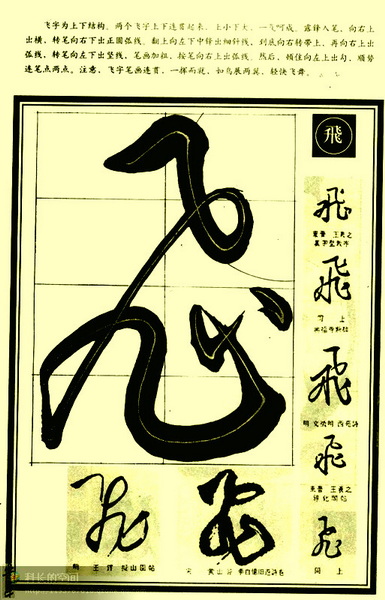 飞字为上下结构。两个飞字上下连贯起来，上小下大，一气呵成。露锋入笔，向右上
出横，转笔向右下出正圆弧线，翻上向左下中锋出细针线，到底向右转带上，再向右上出
弧线，转笔向左下出竖线，笔画加粗，按笔向右上出弧线。然后，顿住向左上出勾，顺势
连笔点两点。注意，飞字笔画连贯，一挥而就，如鸟展两翼，轻快飞舞。
飛
飛
飛
東晋 王羲之
飛
同上
飛
明 文徵明 西苑詩
飛
東晋 王羲之
飛
同上
飛
明 王鐸 擬山園帖
飛
宋 黄山谷 李白憶旧遊詩卷
科长的空间